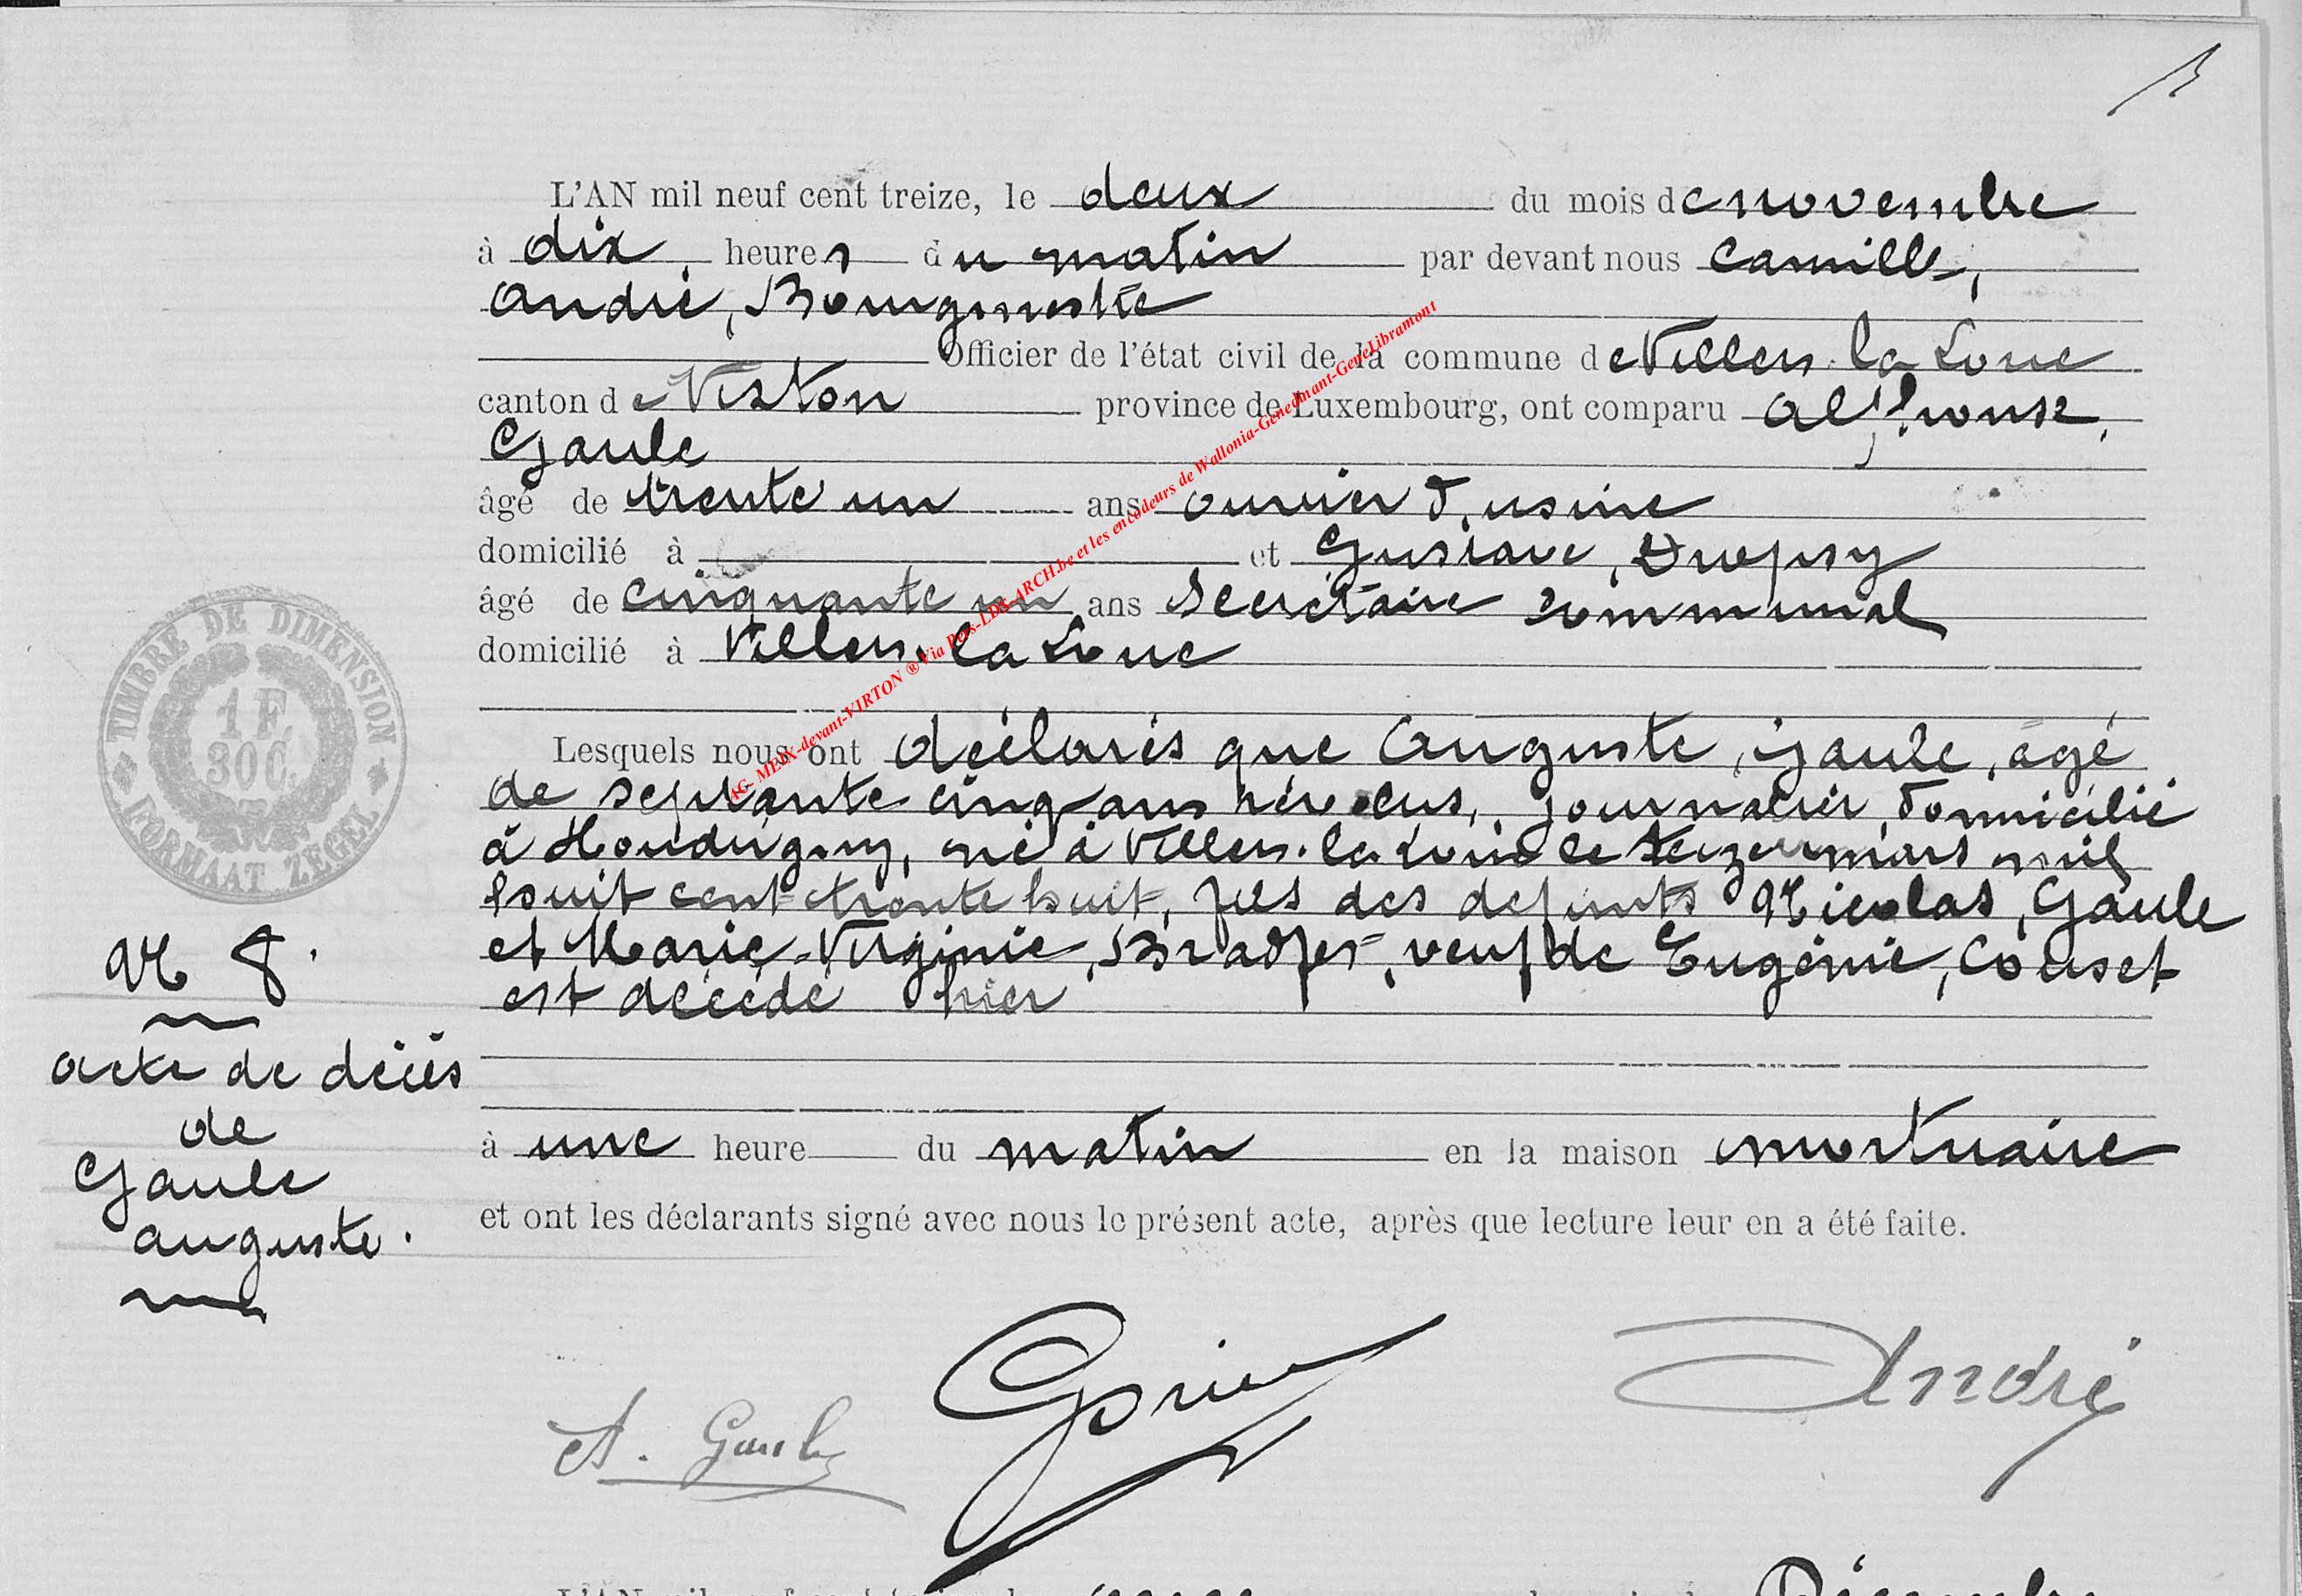 L'AN mil neuf cent treize, le deux du mois de novembre
à dix heures du matin par devant nous Camille,
André, Bourgmestre
Officier de l'état civil de la commune de Villers-la-Loue
canton de Virton province de Luxembourg, ont comparu Alphonse,
Gaule
âgé de trente un ans ouvrier d'usine
domicilié à et Gustave,
âgé de cinquante un ans secrétaire communal
domicilié à Villers-la-Loue
Lesquels nous ont déclarés que Auguste, Gaule, âgé
de septante cinq ans, journalier, domicilié
à Houdrigny, né à Villers-la-Loue le mars mil
huit cent trente huit, fils des defunts Nicolas, Gaule
et Marie-Virginie, Bradfer, veuf de Eugénie, Couset
est décédé hier
N 8.
acte de décès
de
Gaule
auguste.
à une heure du matin en la maison mortuaire
et ont les déclarants signé avec nous le présent acte, après que lecture leur en a été faite.
A. Gaule
André
TIMBRE DE DIMENSION
1 F.
30 C.
FORMAAT ZEGEL
AG- MEIX-devant-VIRTON ® Via Pers-LDS-ARCH.be et les encodeurs de Wallonia-Genedinant-GeneLibramont